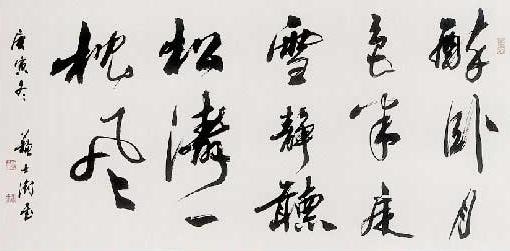 醉卧月
色半床
雪靜聽
松濤一
枕风
庚寅冬 蘇士澍书